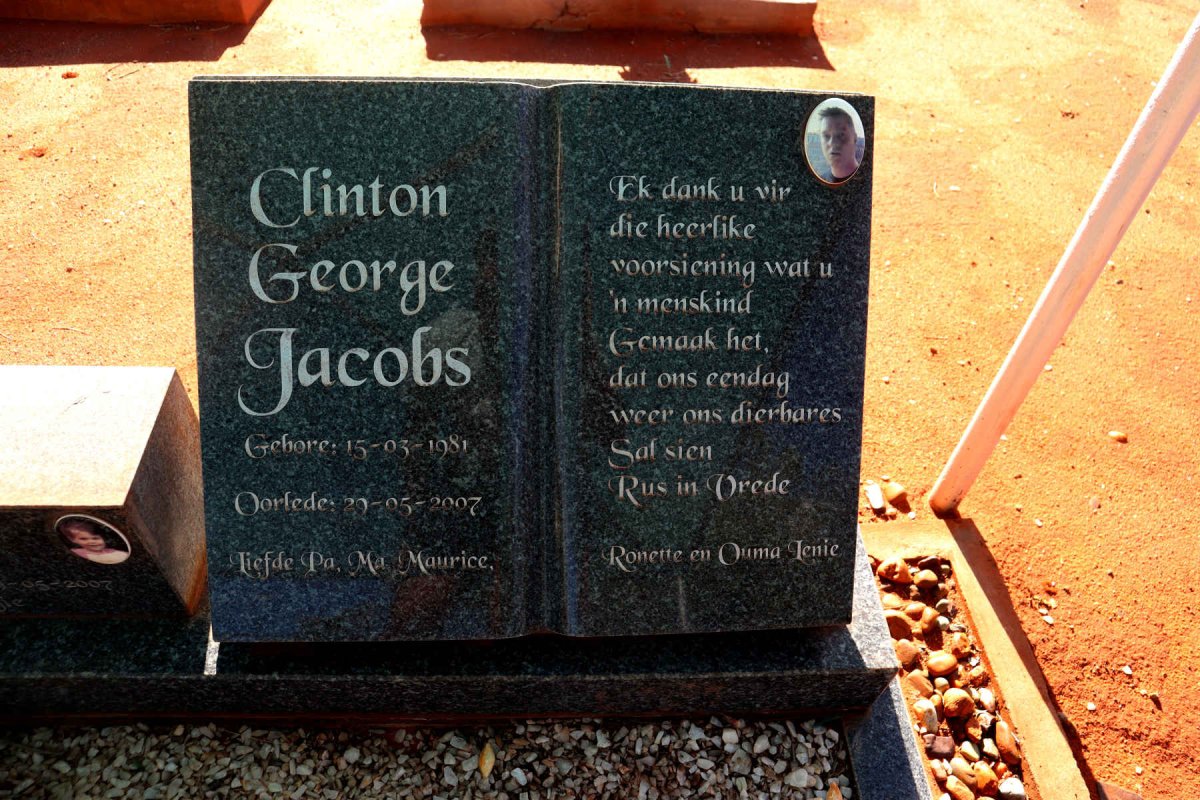 Clinton
George
Jacobs
Gebore: 15-03-1981
Oorlede: 29-05-2007
Liefde Pa, Ma Maurice,
Ek dank u vir
die heerlike
voorsiening wat u
'n menskind
Gemaak het,
dat ons eendag
weer ons dierbares
Sal sien
Rus in Vrede
Ronette en Ouma Lenie
-05-2007